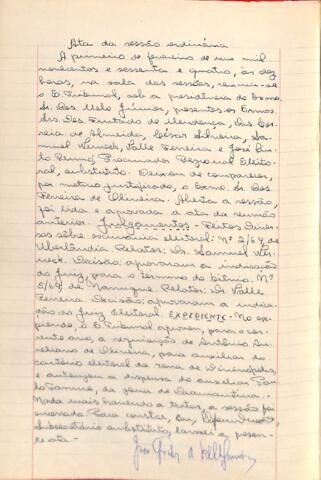 Ata da sessão ordinária
A primeiro de fevereiro de um mil
novecentos e sessenta e quatro, às dez
horas, na sala das sessões, reuniu-se
o E. Tribunal, sob a presidência do Exmo.
Sr. Des. Melo Júnior, presentes os Exmos.
Srs. Des. Furtado de Mendonça, Drs. Cor-
reia de Almeida, César Silveira, Sa-
muel Werneck, Valle Ferreira e José
Procurador Regional Eleito-
ral, substituto. Deixou de comparecer,
por motivo justificado, o Exmo. Sr. Des.
Ferreira de Oliveira. Aberta a sessão,
foi lida e aprovada a ata da reunião
anterior. Julgamentos - Feitos Diver-
sos sôbre escrivania eleitoral: Nº 2/64, de
Uberlândia. Relator: Dr. Samuel Wer-
neck. Decisão: aprovaram a indicação
do Juiz, para o término do biênio. Nº
5/64, de Relator: Dr. Valle
Ferreira. Decisão: aprovaram a indica-
ção do Juiz Eleitoral. EXPEDIENTE - No ex-
pediente, o E. Tribunal aprovou, para o cor-
rente ano, a requisição de Antônio Au-
reliano de Oliveira, para auxiliar do
cartório eleitoral da zona de Divinópolis,
e autorizou a dispensa do auxiliar
da zona de Diamantina.
Nada mais havendo a tratar, a sessão foi
encerrada. Para constar, eu,
Subsecretário substituto, lavrei a presen-
te ata -